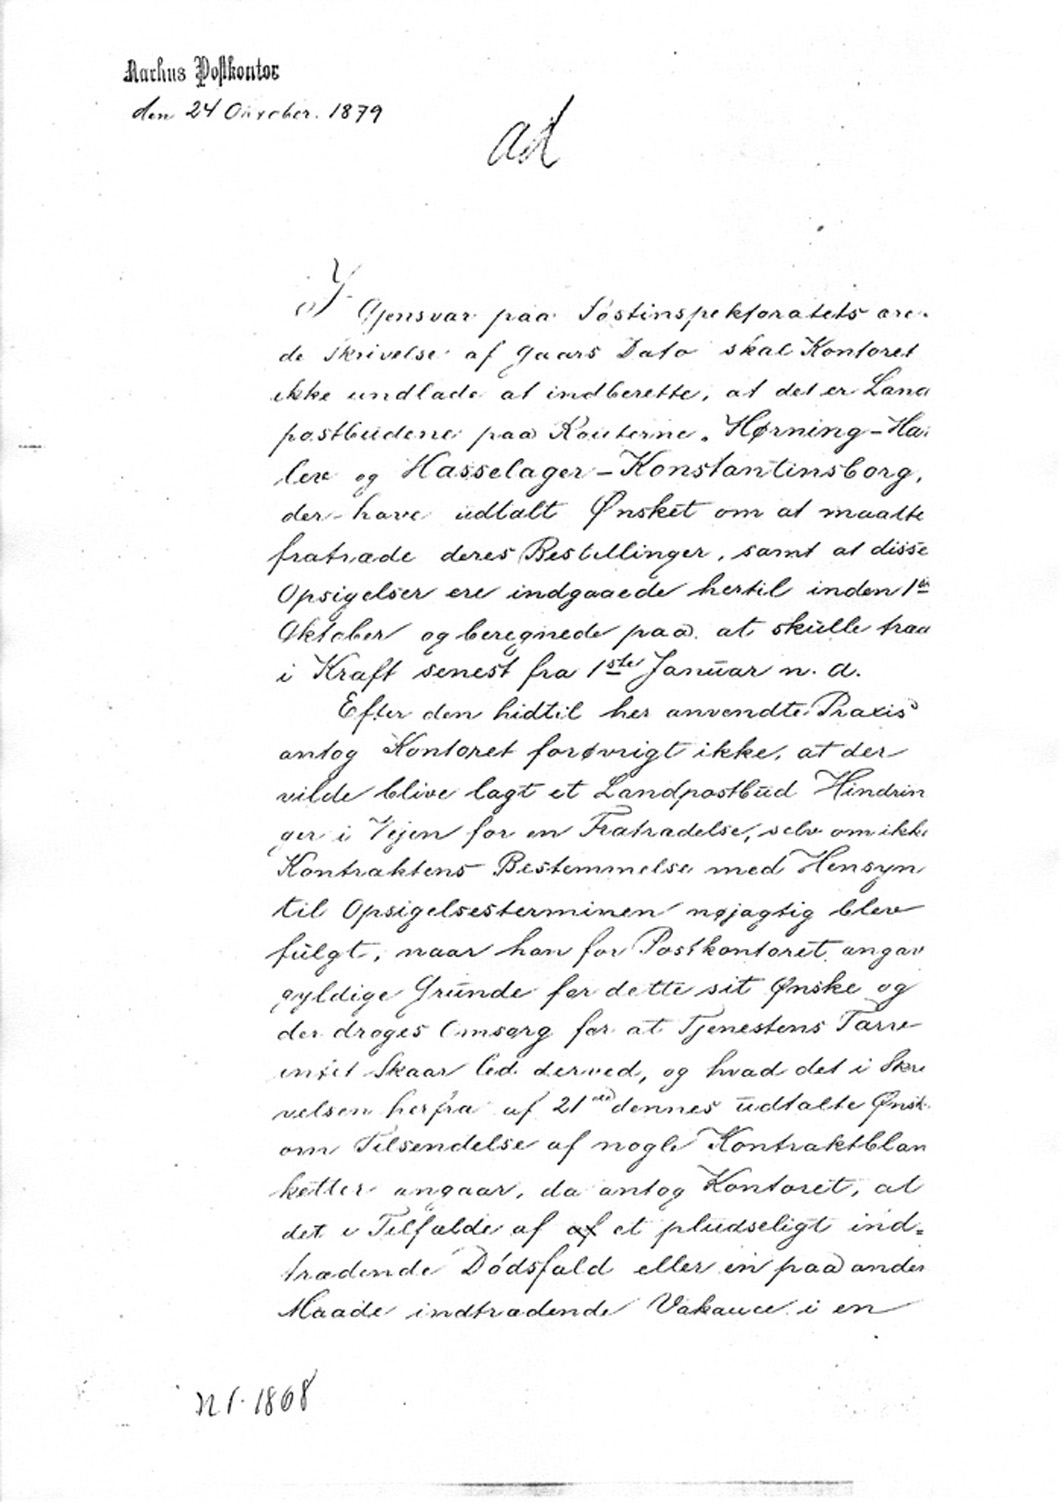 Aarhus Postkontor
den 24 October. 1879
ad
I Gjensvar paa Postinspektoratets ære-
de Skrivelse af Gaars Dato skal Kontoret
ikke undlade at indberette, at det er Land
postbudene paa Routerne, Hørning-Ha
lev og Hasselager-Konstantinsborg,
der have udtalt Ønsket om at maatte
fratræde deres Bestillinger, samt at disse
Opsigelser ere indgaaede hertil inden 1ste
Oktober og beregnede paa at skulle træde
i Kraft senest fra 1ste Januar n. A.
Efter den hidtil her anvendte Praxis
antog Kontoret forøvrigt ikke, at der
vilde blive lagt et Landpostbud Hindrin
ger i Vejen for en Fratrædelse, selv om ikke
Kontraktens Bestemmelse med Hensyn
til Opsigelsesterminen nøjagtig blev
fulgt, naar han for Postkontoret angav
gyldige Grunde for dette sit Ønske og
der droges Omsorg for at Tjenestens Tarv
intet Skaar led derved, og hvad det i Skri
velsen herfra af 21de dennes udtalte Ønske
om Tilsendelse af nogle Kontraktblan
ketter angaar, da antog Kontoret, at
det i Tilfælde af af et pludseligt ind=
trædende Dødsfald eller en paa anden
Maade indtrædende Vakance i en
Nr. 1868